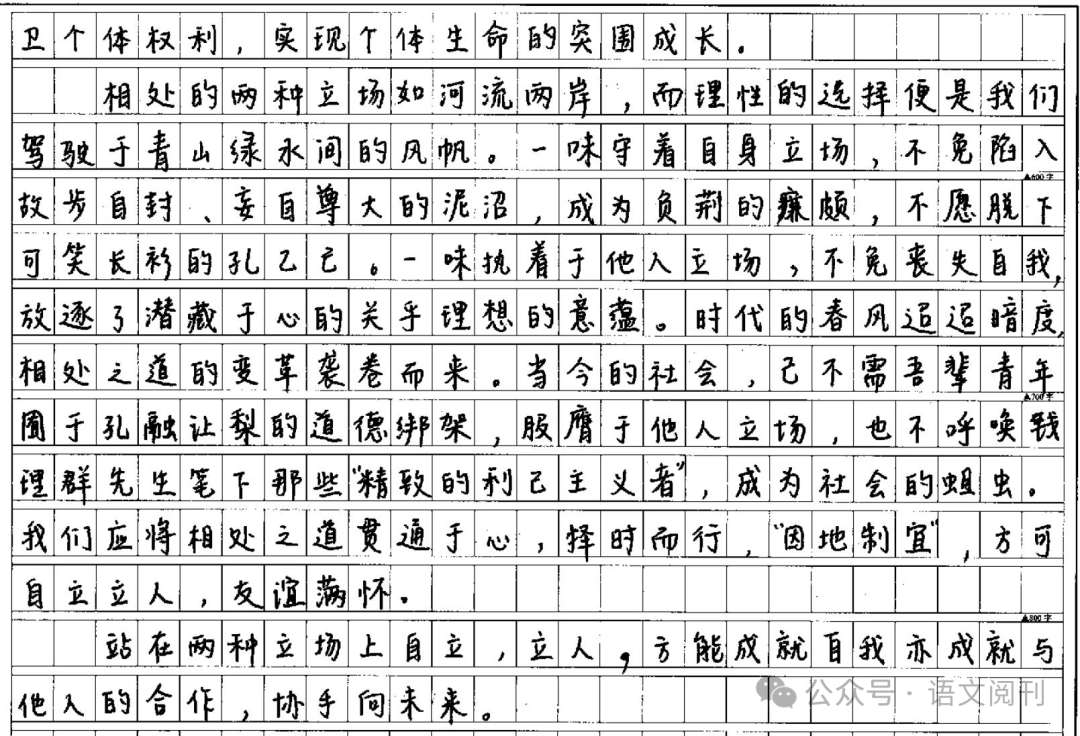 卫个体权利，实现个体生命的突围成长。
相处的两种立场如河流两岸，而理性的选择便是我们
驾驶于青山绿水间的风帆。一味守着自身立场，不免陷入
▲600字
故步自封、妄自尊大的泥沼，成为负荆的廉颇，不愿脱下
可笑长衫的孔乙己。一味执着于他人立场，不免丧失自我，
放逐了潜藏于心的关乎理想的意蕴。时代的春风迢迢暗度，
相处之道的变革袭卷而来。当今的社会，已不需吾辈青年
▲700字
囿于孔融让梨的道德绑架，服膺于他人立场，也不呼唤钱
理群先生笔下那些"精致的利己主义者"，成为社会的蛆虫。
我们应将相处之道贯通于心，择时而行，"因地制宜"，方可
自立立人，友谊满怀。
▲800字
站在两种立场上自立，立人，方能成就自我亦成就与
他人的合作，协手向未来。
公众号·语文阅刊